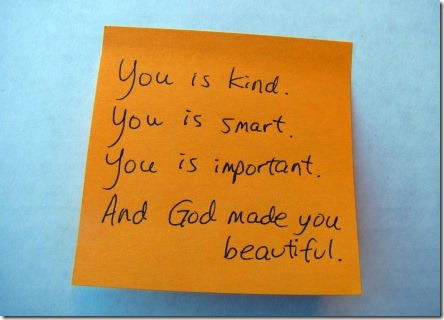 You is kind.
You is smart.
You is important.
And God made you
beautiful.